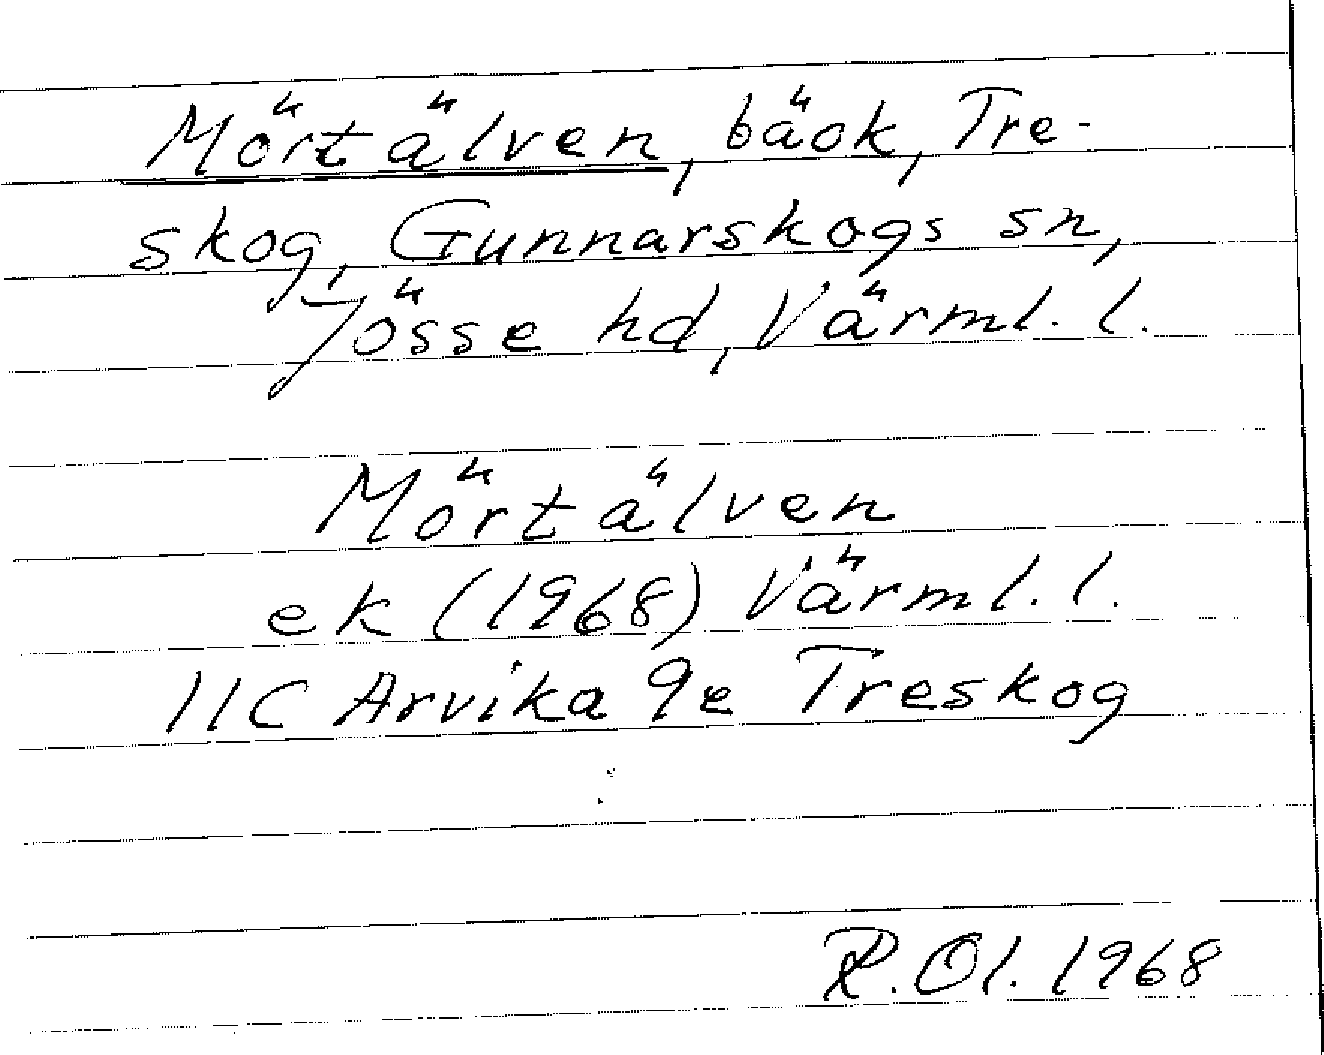 Mörtälven, bäck, Tre-
skog, Gunnarskogs sn,
Jösse hd, Värml. l.
Mörtälven
ek (1968) Värml. l.
11C Arvika 9e Treskog
R. Ol. 1968